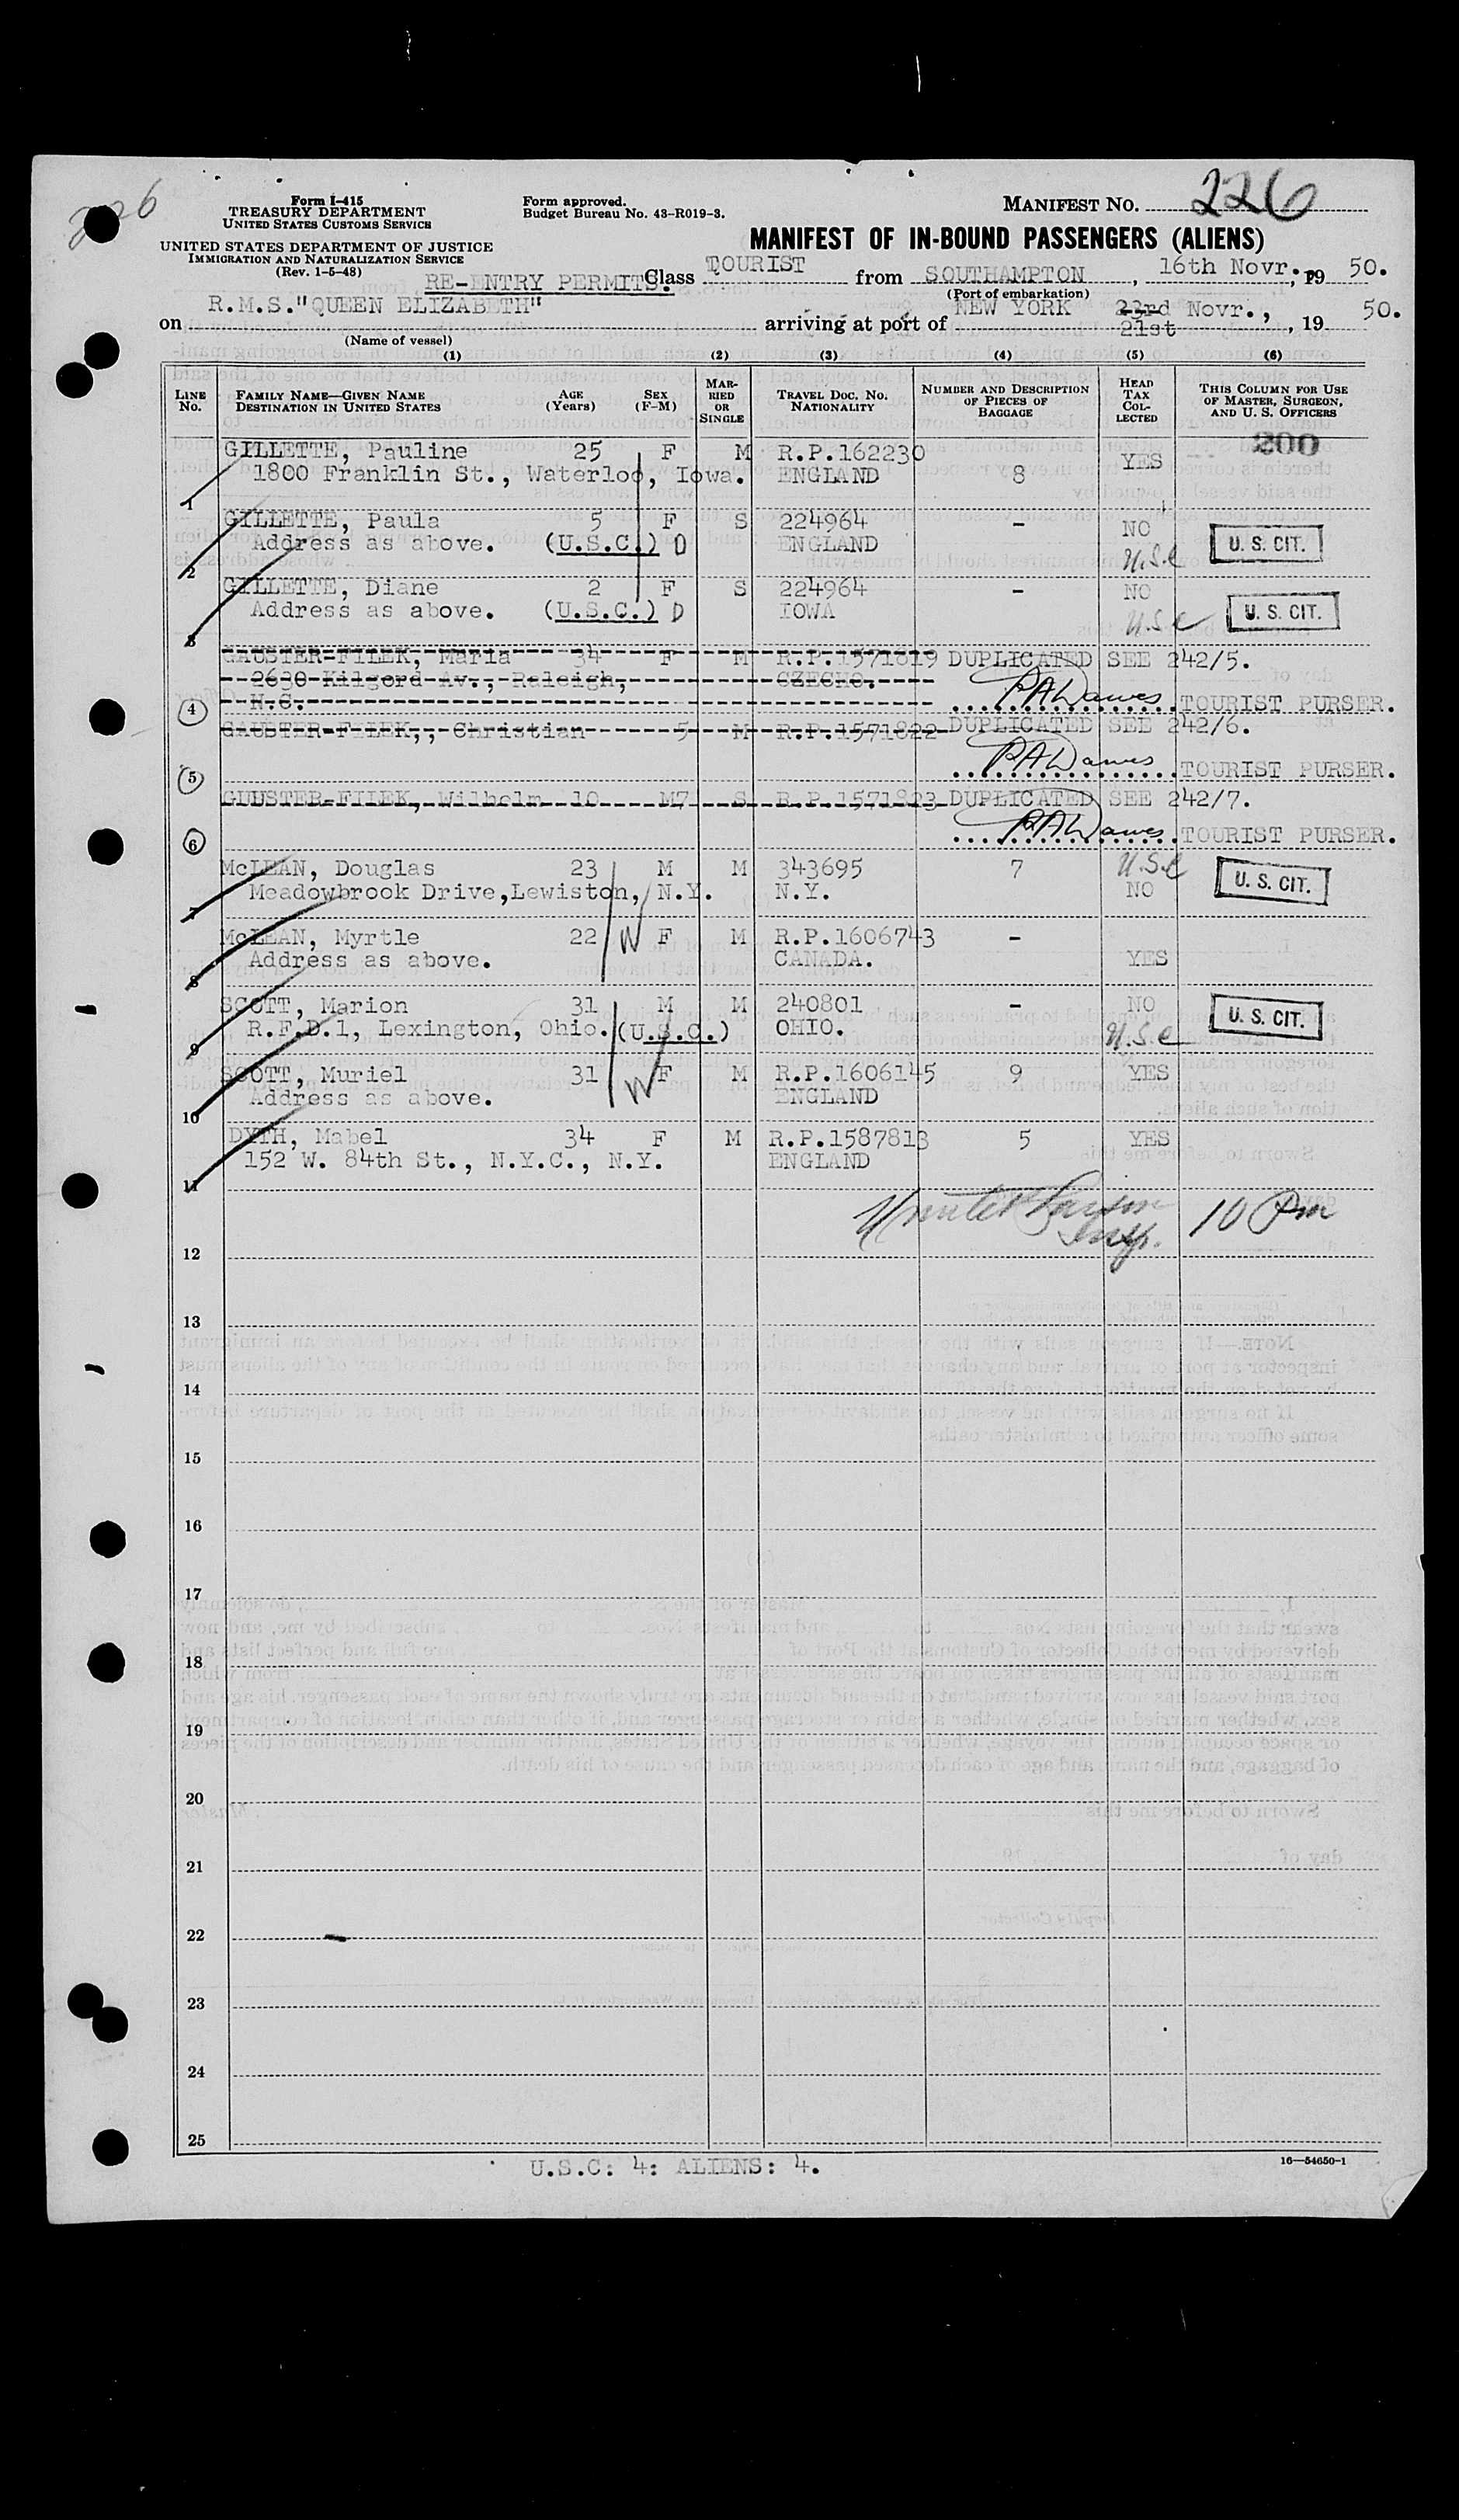 226
Form I-415
TREASURY DEPARTMENT
UNITED STATES CUSTOMS SERVICE
UNITED STATES DEPARTMENT OF JUSTICE
IMMIGRATION AND NATURALIZATION SERVICE
(Rev. 1-5-48)
Form approved.
Budget Bureau No. 43-R019-3.
MANIFEST NO. 226
MANIFEST OF IN-BOUND PASSENGERS (ALIENS)
RE-ENTRY PERMITS. Class TOURIST from SOUTHAMPTON, 16th Novr., 19 50.
(Port of embarkation)
on R.M.S."QUEEN ELIZABETH" arriving at port of NEW YORK 23rd Novr., , 19 50.
21st
(Name of vessel)
(1) (2) (3) (4) (5) (6)
LINE No. FAMILY NAME—GIVEN NAME DESTINATION IN UNITED STATES AGE (Years) SEX (F-M) MARRIED OR SINGLE TRAVEL DOC. NO. NATIONALITY NUMBER AND DESCRIPTION OF PIECES OF BAGGAGE HEAD TAX COLLECTED THIS COLUMN FOR USE OF MASTER, SURGEON, AND U. S. OFFICERS
200
GILLETTE, Pauline 25 F M R.P.162230 YES
1800 Franklin St., Waterloo, Iowa. ENGLAND 8
1
GILLETTE, Paula 5 F S 224964 - NO
Address as above. (U.S.C.) D ENGLAND U.S.C U. S. CIT.
2
GILLETTE, Diane 2 F S 224964 - NO
Address as above. (U.S.C.) D IOWA U.S.C U. S. CIT.
3
GAUSTER-FILEK, Maria 34 F M R.P.1571819 DUPLICATED SEE 242/5.
2630 Kilgord Av., Raleigh, CZECHO.
4 N.C. P.A.Dawes TOURIST PURSER.
GAUSTER-FILEK,, Christian 5 M R.P.1571822 DUPLICATED SEE 242/6.
5 P.A.Dawes TOURIST PURSER.
GUUSTER-FILEK, Wilhelm 10 M7 S R.P.1571823 DUPLICATED SEE 242/7.
6 P.A.Dawes TOURIST PURSER.
McLEAN, Douglas 23 M M 343695 7 U.S.C
Meadowbrook Drive,Lewiston, N.Y. N.Y. NO U. S. CIT.
7
McLEAN, Myrtle 22 W F M R.P.1606743 -
Address as above. CANADA. YES
8
SCOTT, Marion 31 M M 240801 - NO
R.F.D.1, Lexington, Ohio. (U.S.C.) OHIO. U.S.C U. S. CIT.
9
SCOTT, Muriel 31 W F M R.P.1606145 9 YES
Address as above. ENGLAND
10
DYTH, Mabel 34 F M R.P.1587813 5 YES
152 W. 84th St., N.Y.C., N.Y. ENGLAND
11
Insp. 10 Pm
12
13
14
15
16
17
18
19
20
21
22
23
24
25
U.S.C: 4: ALIENS: 4.
16—54650-1